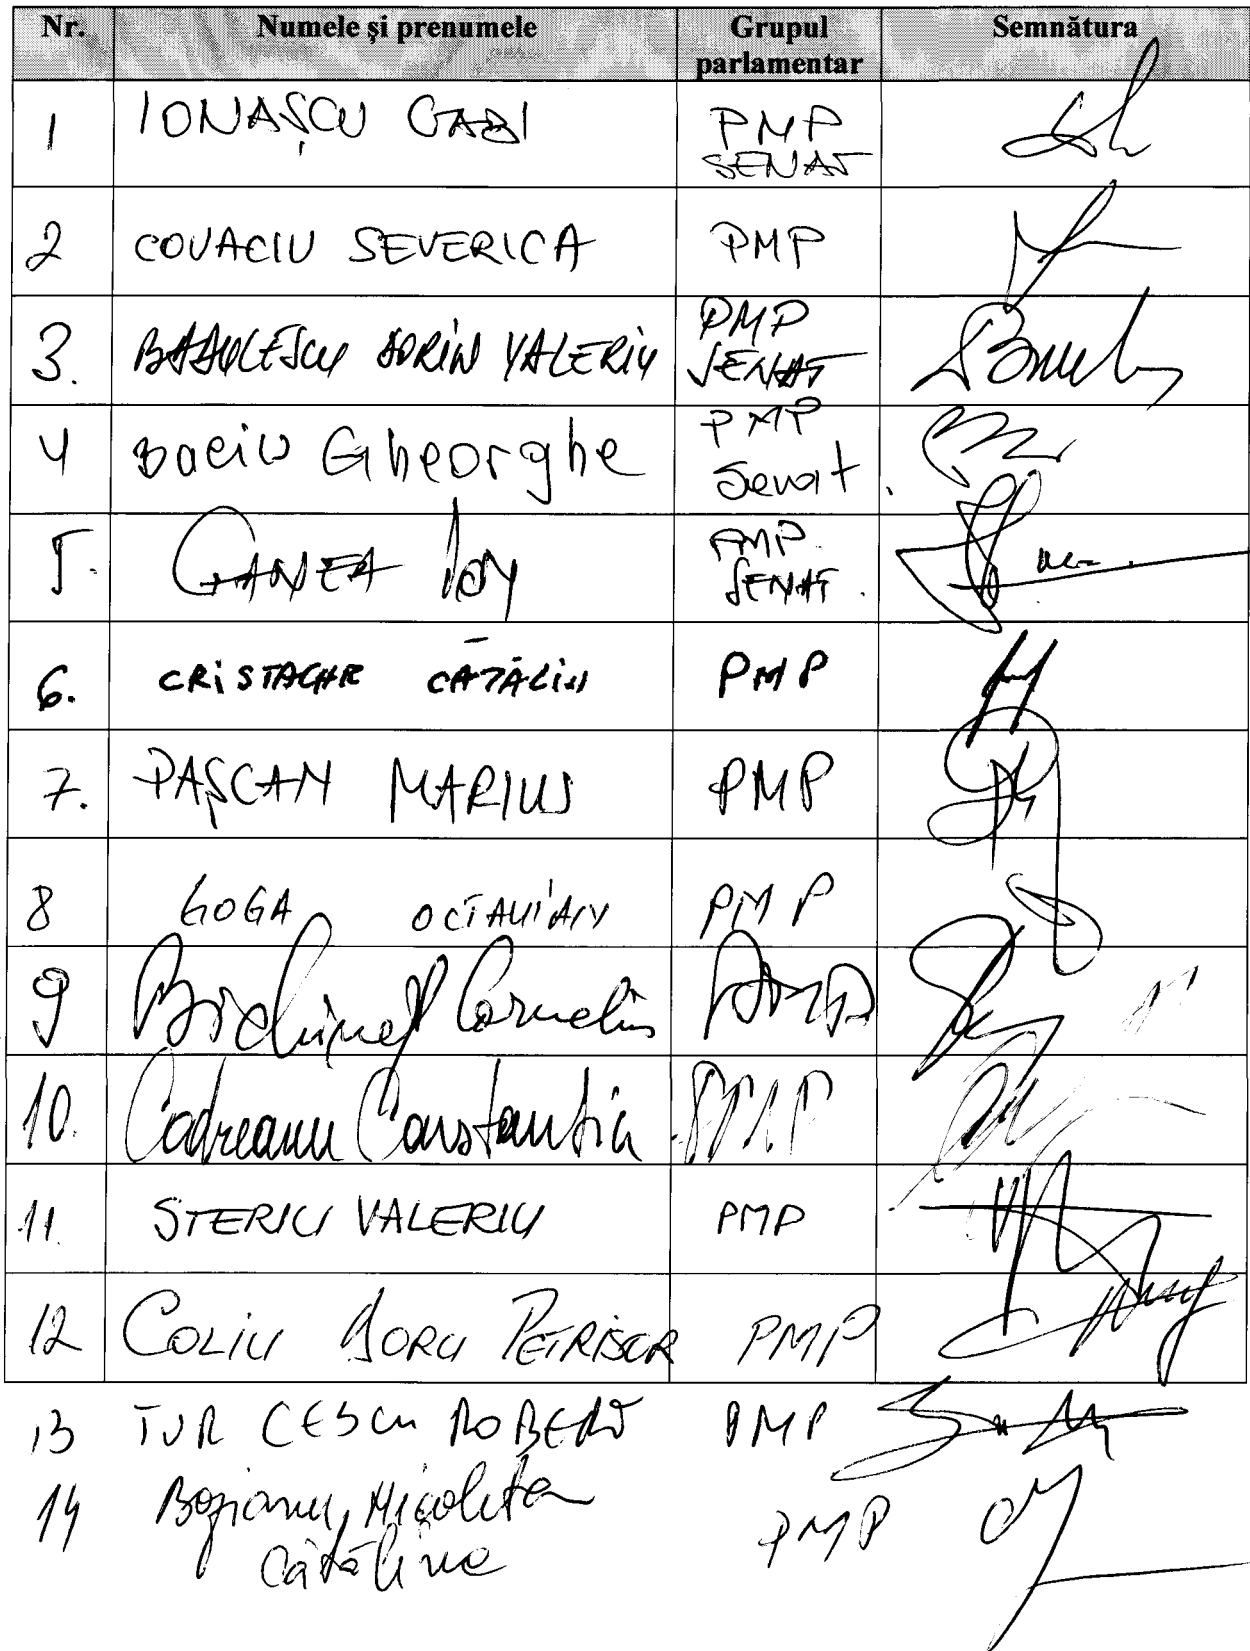 Nr. Numele și prenumele Grupul parlamentar Semnătura
1 IONAȘCU GABI PMP SENAT
2 COVACIU SEVERICA PMP
3. BĂDULESCU DORIN VALERIU PMP SENAT
4 Baciu Gheorghe PMP Senat
5. GANEA Ion PMP SENAT
6. CRISTACHE CĂTĂLIN PMP
7. PAȘCAN MARIUS PMP
8 GOGA OCTAVIAN PMP
9 Bichineț Corneliu PMP
10. Codreanu Constantin PMP
11. STERIU VALERIU PMP
12 COLIU DORU PETRISOR PMP
13 TURCESCU ROBERT PMP
14 Boțianu, Nicoleta PMP
Cătălina